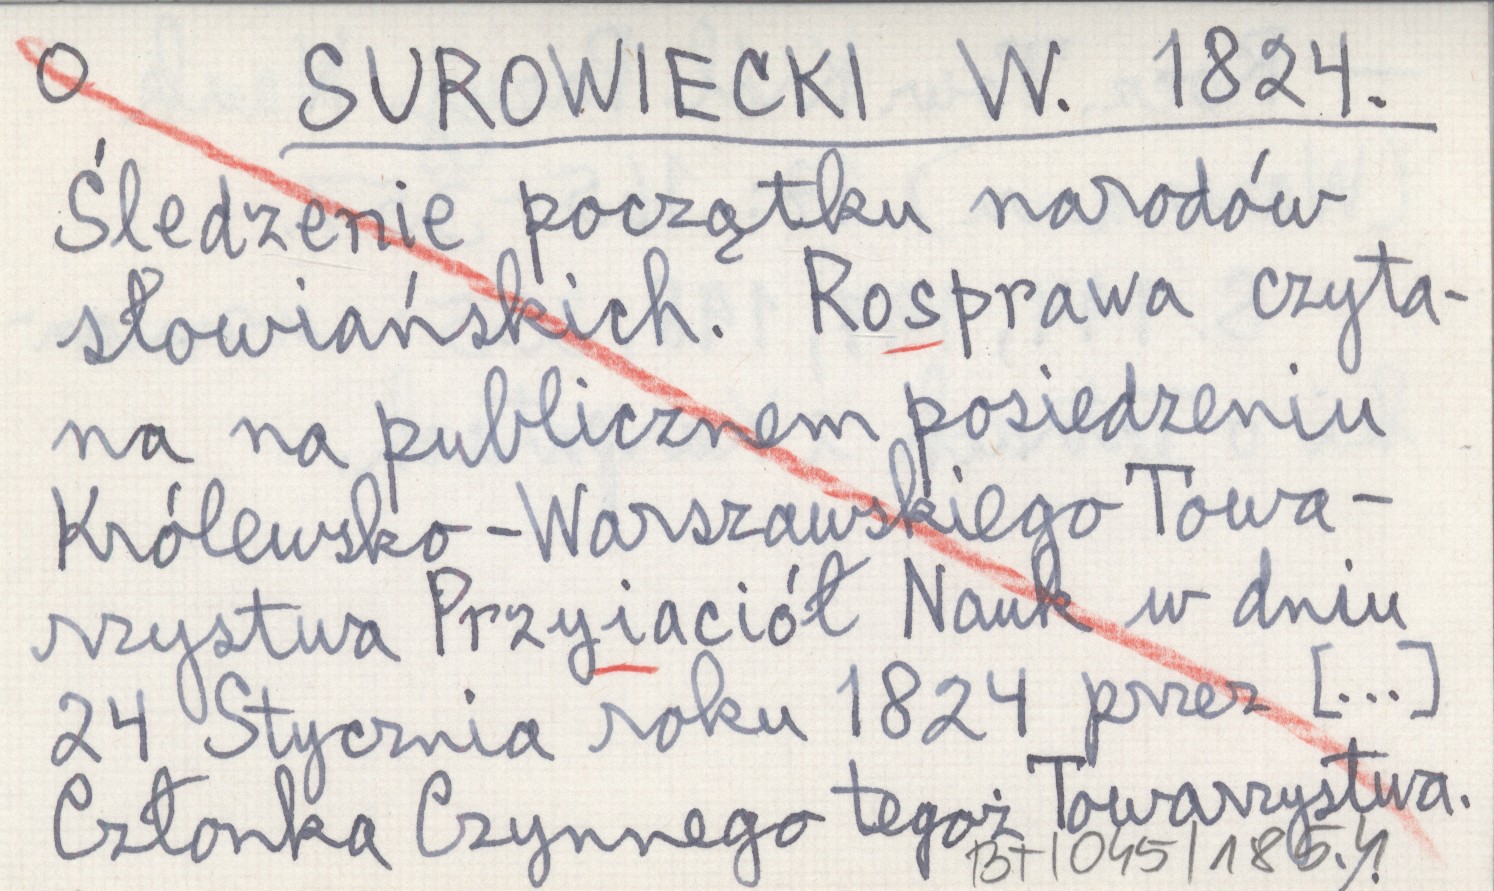 O SUROWIECKI W. 1824.
Śledzenie początku narodów
słowiańskich. Rosprawa czyta-
na na publicznem posiedzeniu
Królewsko-Warszawskiego Towa-
rzystwa Przyiaciół Nauk w dniu
24 Stycznia roku 1824 przez [...]
Członka Czynnego tegoż Towarzystwa.